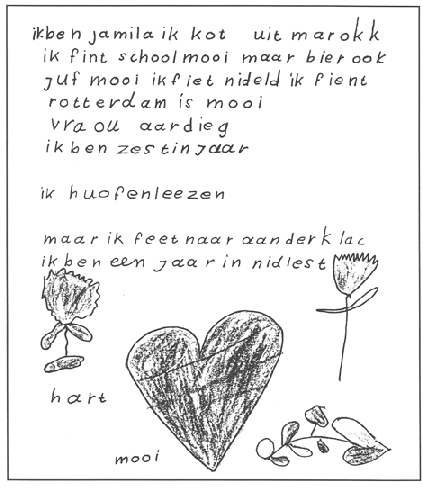 ikben jamila ik kot uit marokk
ik fint school mooi maar bier ook
juf mooi ik fiet nideld ik fient
rotterdam is mooi
vraou aardieg
ik ben zestin jaar
ik huofenleezen
maar ik feet naar aander klac
ik ben een jaar in nidlest
hart
mooi